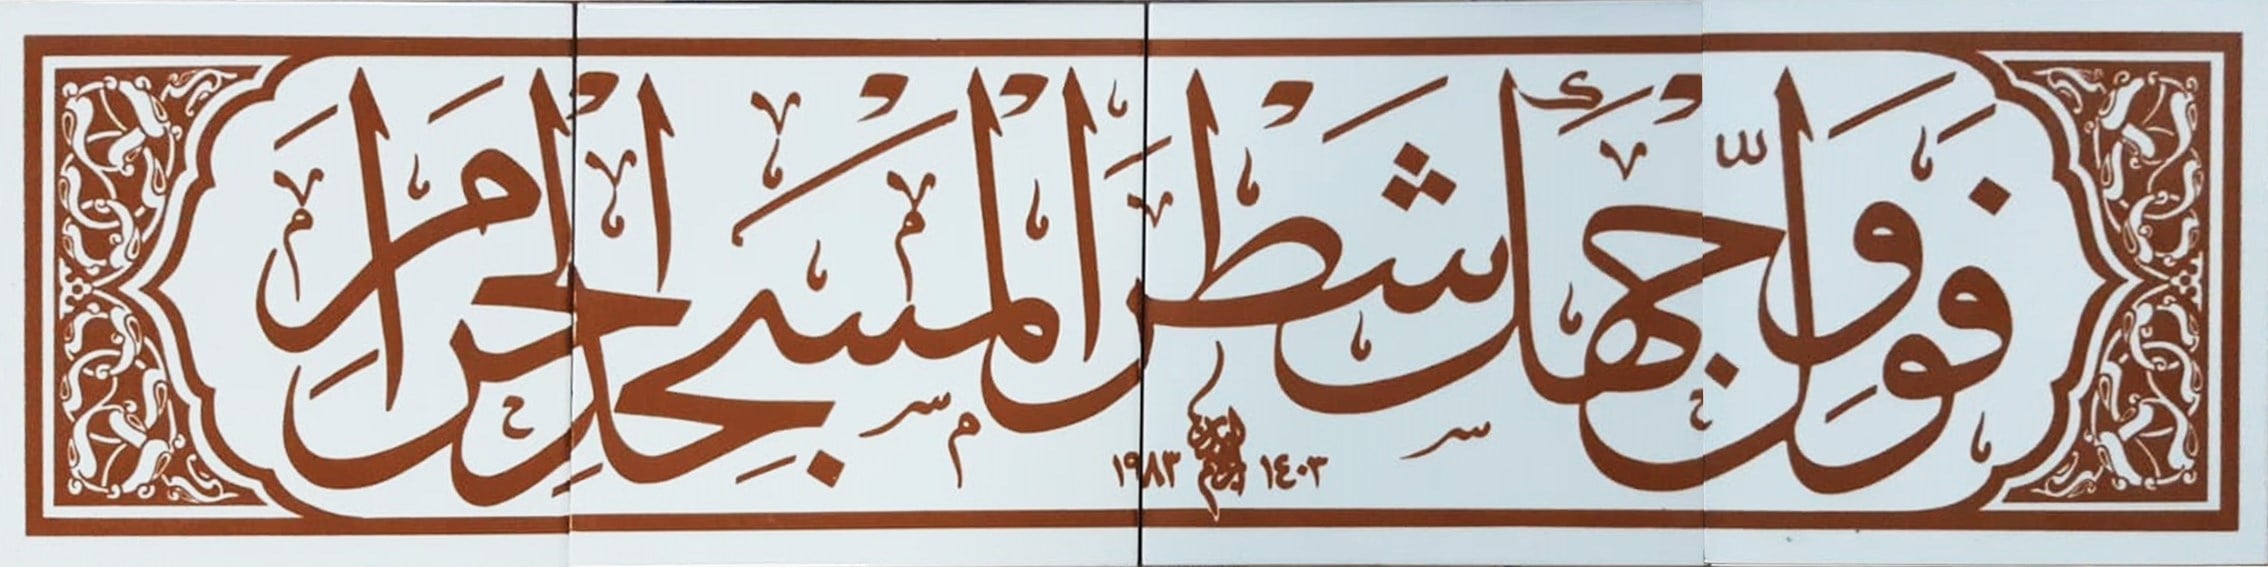 فَوَلِّ وَجْهَكَ شَطْرَ الْمَسْجِدِ الْحَرَامِ
١٤٠٣
١٩٨٣